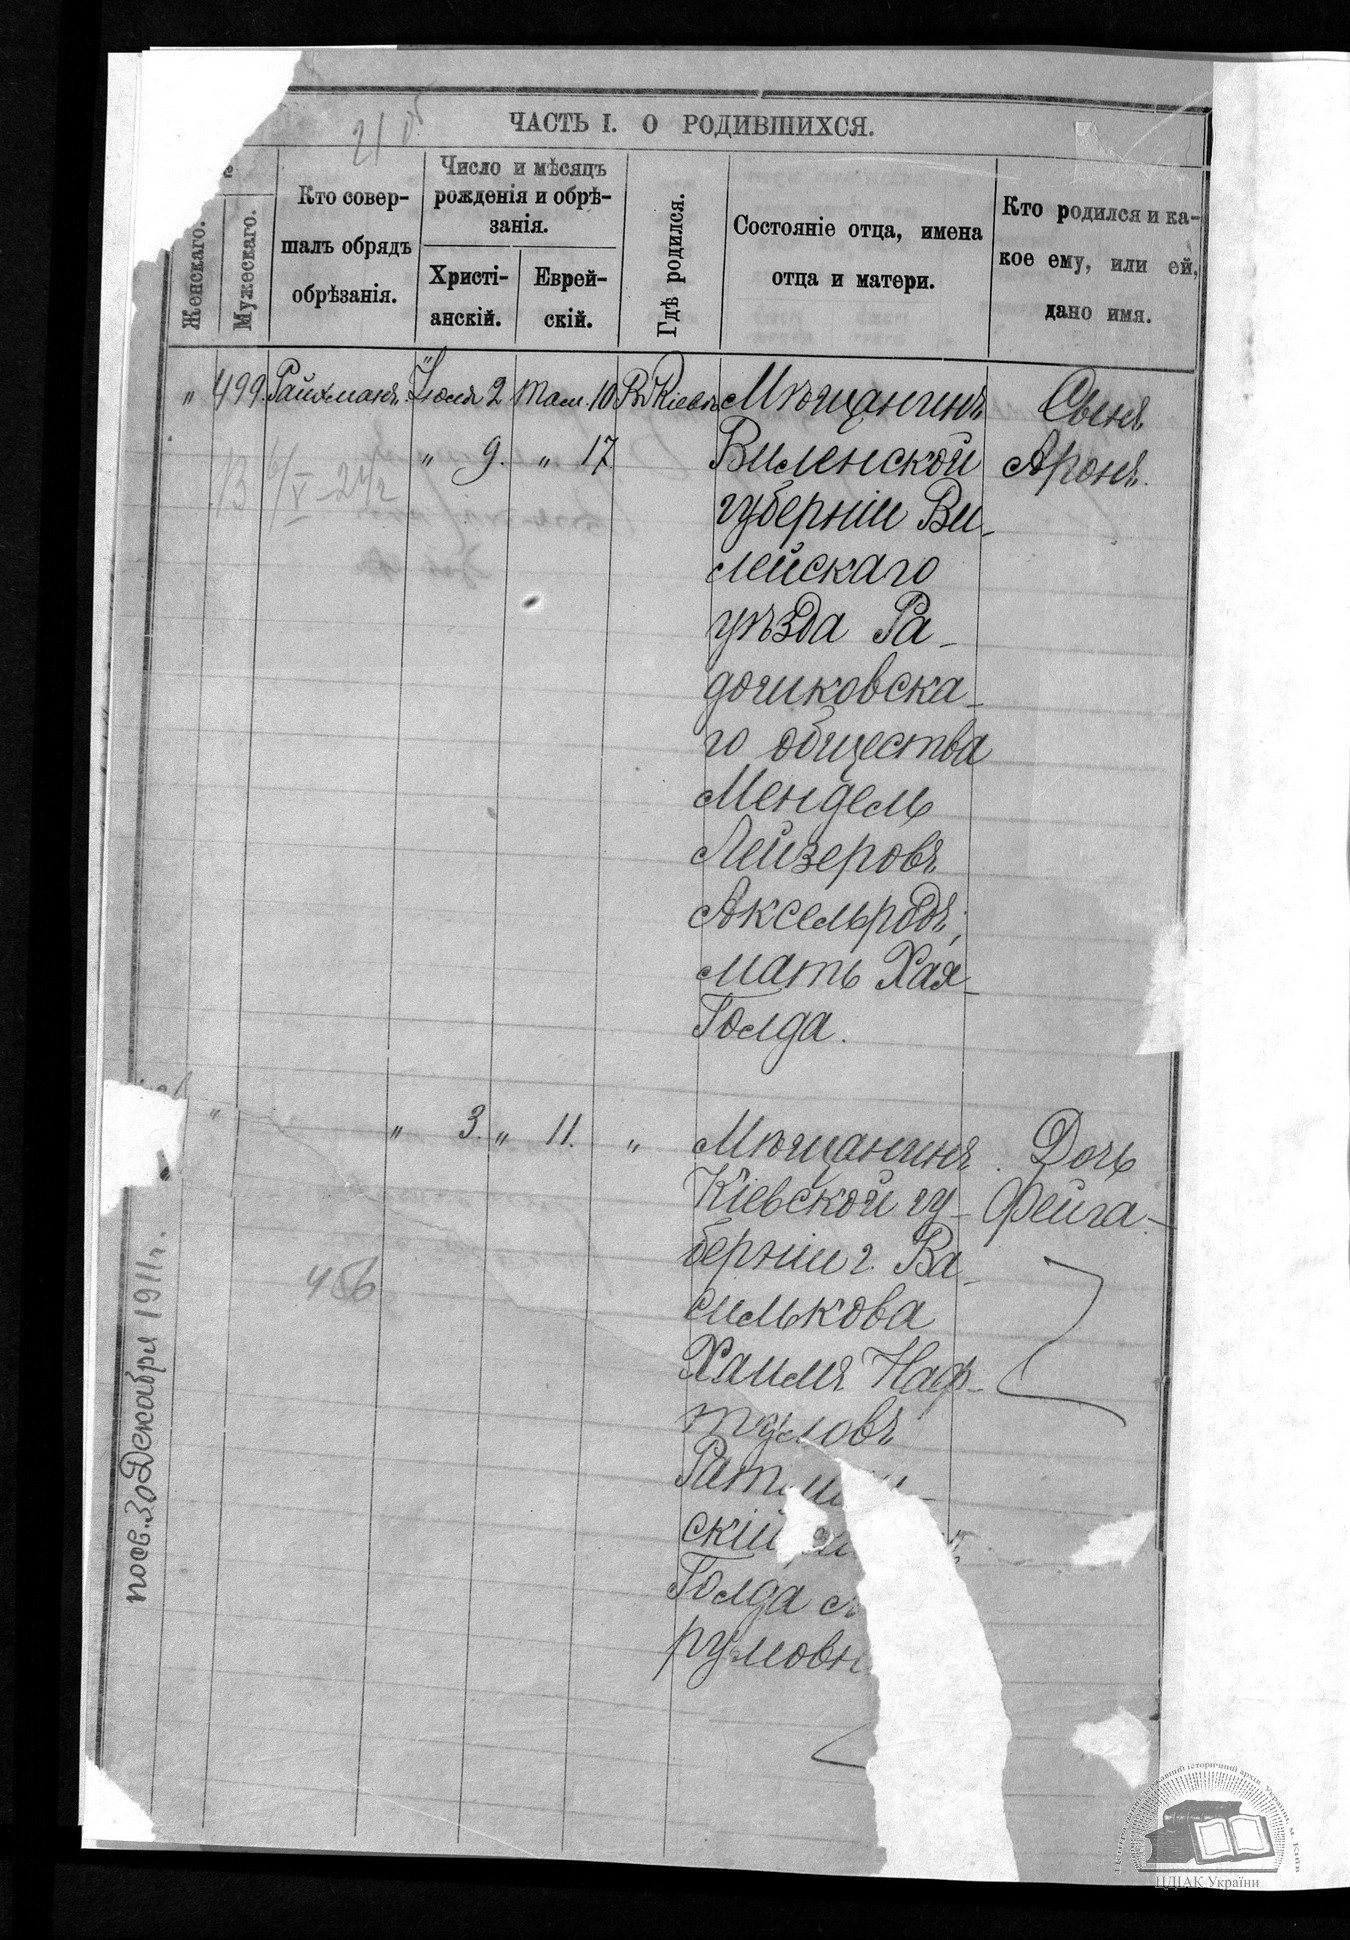 ЧАСТЬ I. О РОДИВШИХСЯ.
Женскаго.
Мужескаго.
Кто совер-
шалъ обрядъ
обрѣзанія.
Число и мѣсяцъ
рожденія и обрѣ-
занія.
Христі-
анскій.
Еврей-
скій.
Гдѣ родился.
Состояніе отца, имена
отца и матери.
Кто родился и ка-
кое ему, или ей,
дано имя.
" 499. Райхманъ. Іюля 2 Там. 10 Въ Кіевѣ Мѣщанинъ Сынъ
" 9. " 17 Виленской Аронъ.
губерніи Ви-
лейскаго
уѣзда Ра-
дошковска-
го общества
Мендель
Лейзеровъ
Аксельродъ,
мать Хая-
Голда.
" " 3. " 11. " Мѣщанинъ Дочь
Кіевской гу- Фейга
берніи г. Ва-
силькова
Хаимъ Наф-
туловъ
скій
Голда
румовн
456
посв. 30 Декабря 1911 г.
ЦДІАК України